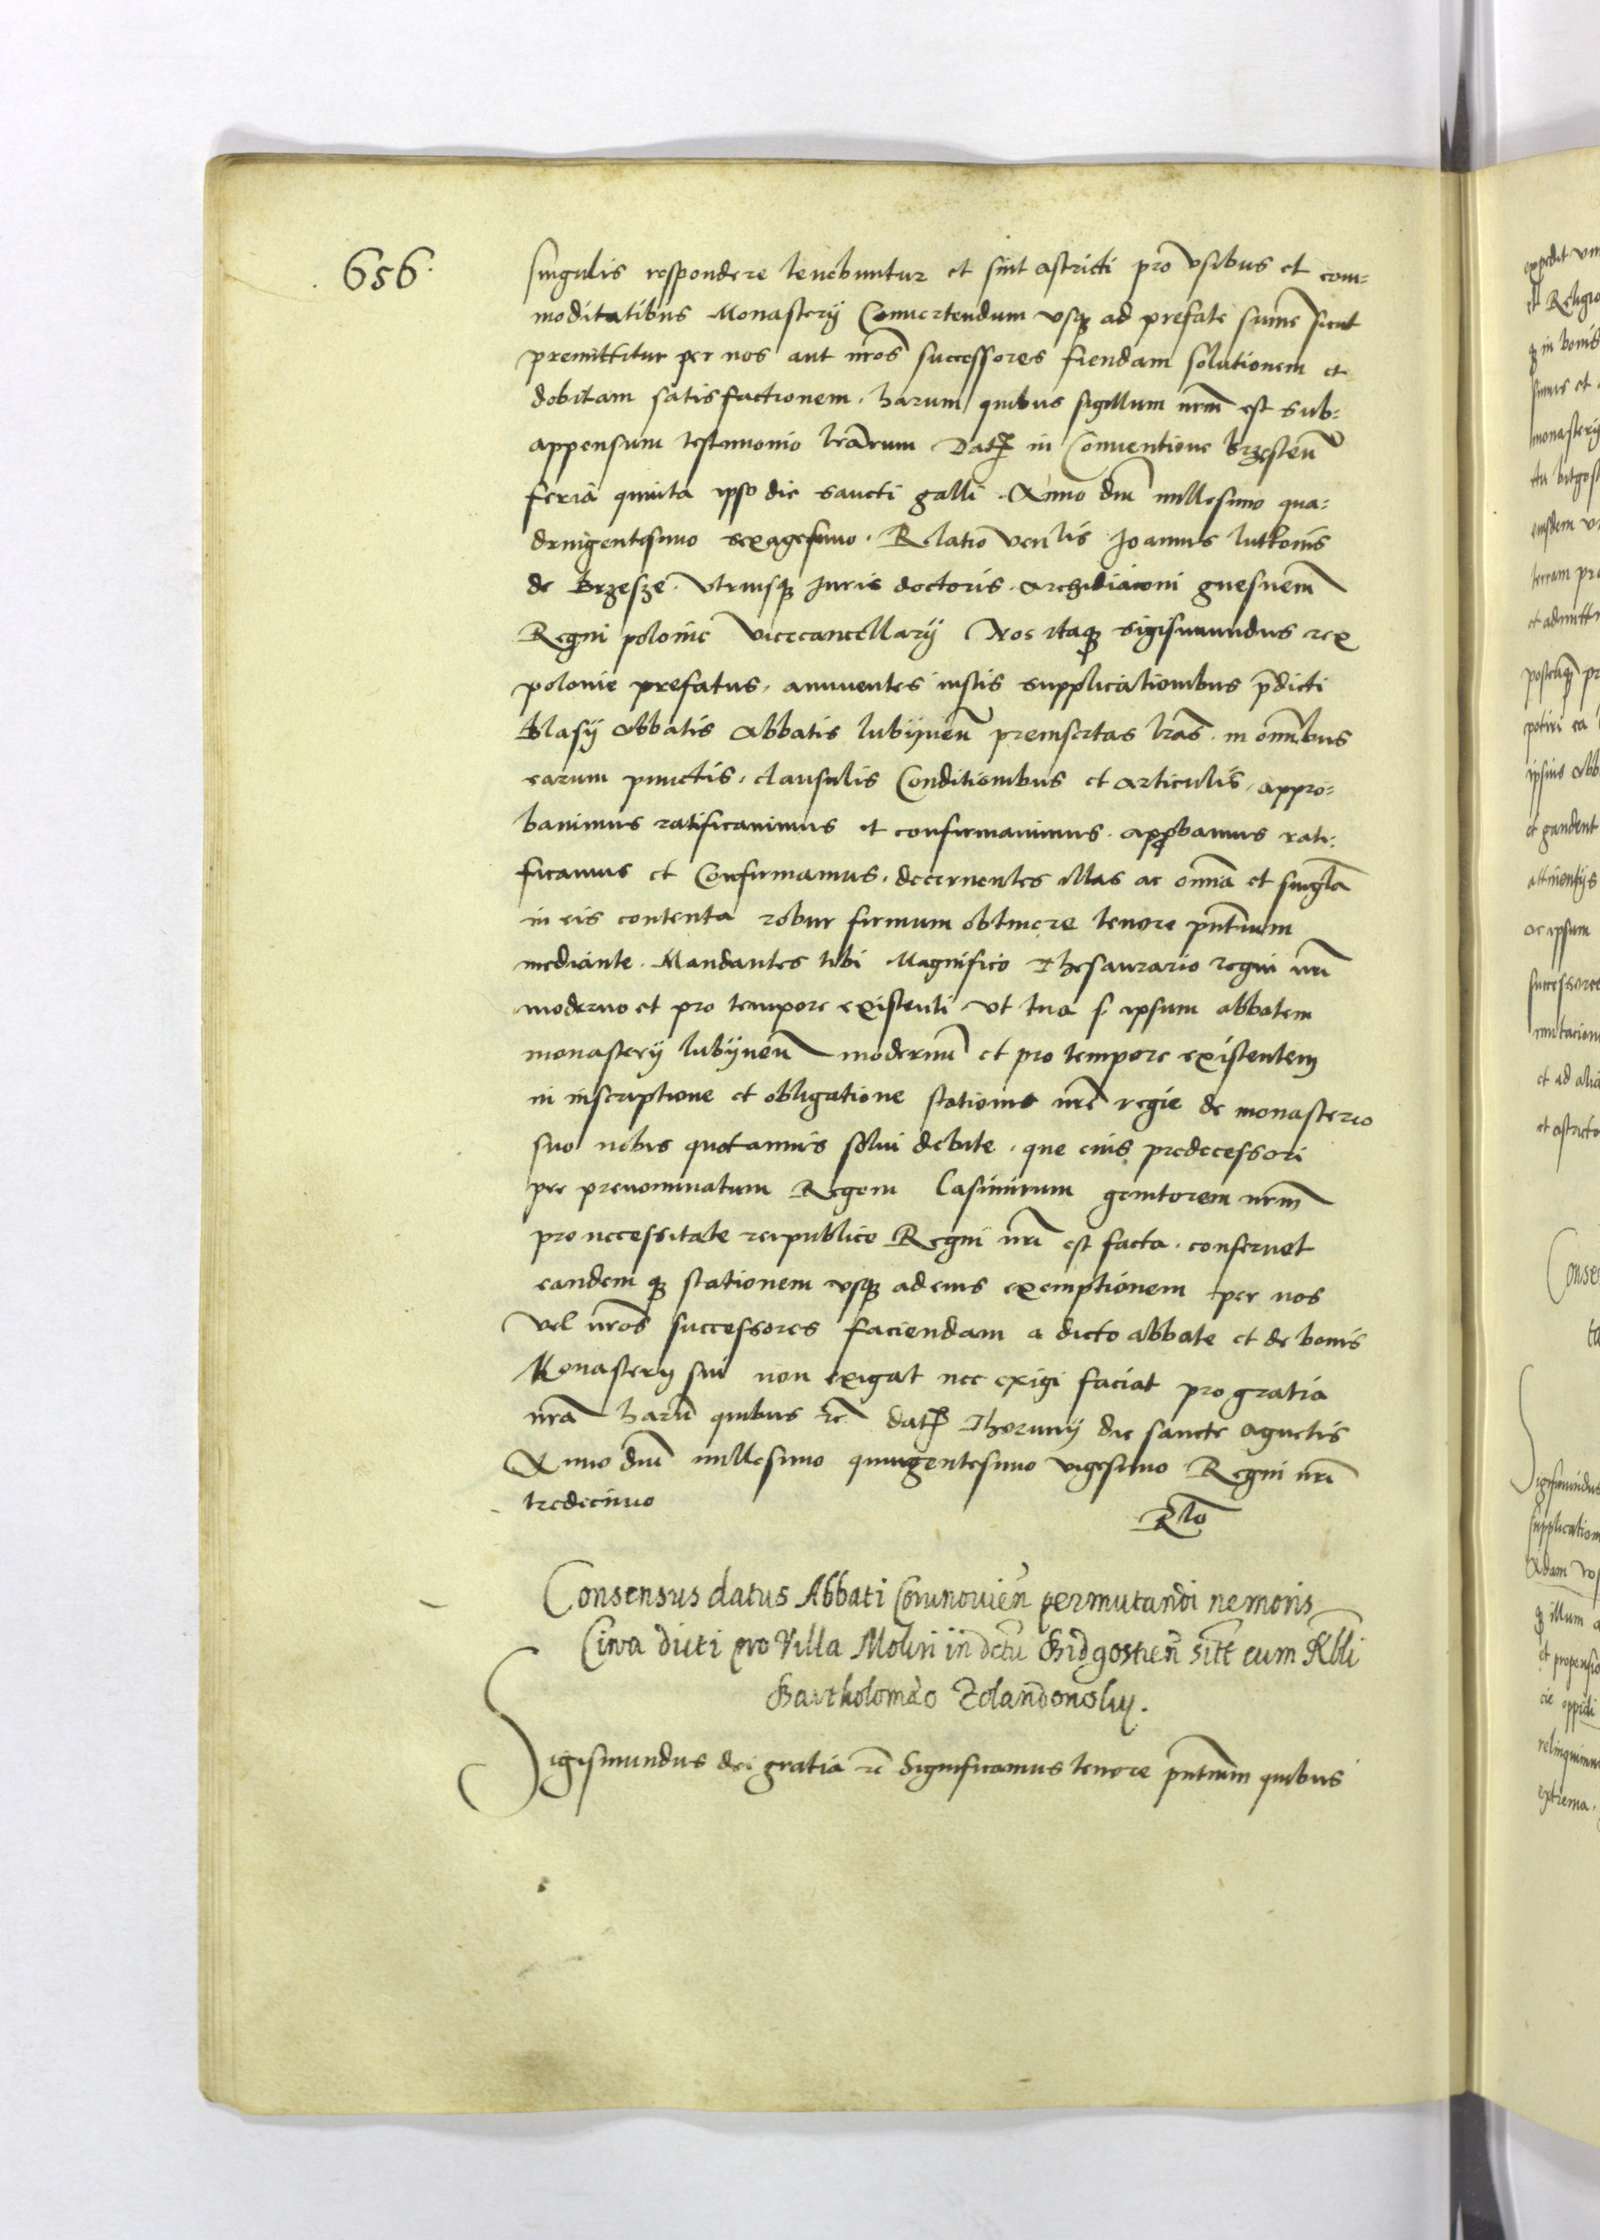 656.
singulis respondere tenebuntur et sint astricti pro vsibus et com=
moditatibus Monasterij Conuertendum vsqȝ ad prefate sum̄e sicut
premittitur per nos aut nr̄os successores fiendam solutionem et
debitam satisfactionem. harum quibus sigillum nrm̄ est sub=
appensum testimonio lr̄arum Datȝ in Conuentione brzesten̄
feria quinta ipso die sancti galli. Anno dnī millesimo qua=
dringentesimo sexagesimo. Relatio ven̄lis Joannis lutkonis
de brzesze. vtriusqȝ Juris doctoris. archidiaconi gnesnen̄
Regni polonie vicecancellarij Nos itaqȝ sigismundus rex
polonie prefatus. annuentes iustis supplicationibus p̄dicti
blasij Abbatis Abbatis lubijnen̄ preinsertas lr̄as. in om̄ibus
earum punctis. clausulis Conditionibus et articulis. appro=
bauimus ratificauimus et confirmauimus. approbamus rati=
ficamus et Confirmamus. decernentes illas ac om̄ia et singl̄a
in eis contenta robur firmum obtinere tenore pn̄tium
mediante. Mandantes tibi Magnifico Thesaurario regni nrī
moderno et pro tempore existenti vt tua s. ipsum abbatem
monasterij lubijnen̄ modernū et pro tempore existentem
in inscriptione et obligatione stationis nrē regie de monasterio
suo nobis quotannis solui debite. que eius predecessori
per prenominatum Regem Casimirum genitorem nrm̄
pro necessitate reipublice Regni nrī est facta. conseruet
eandem qȝ stationem vsqȝ ad eius exemptionem per nos
vel nr̄os successores faciendam a dicto abbate et de bonis
Monasterij sui non exigat nec exigi faciat pro gratia
nrā harū quibus rc̄ datȝ Thorunij die sancte Agnetis
Anno dnī millesimo quingentesimo vigesimo Regni nrī
tredecimo
Rl̄o
Consensus datus Abbati Coronouien̄ permutandi nemoris
dicti pro Villa Molin in dctū Bidgostien̄ sitt̄ cum
Bartholomeo
Sigismundus dei gratia rc̄ Significamus tenore pn̄tium quibus